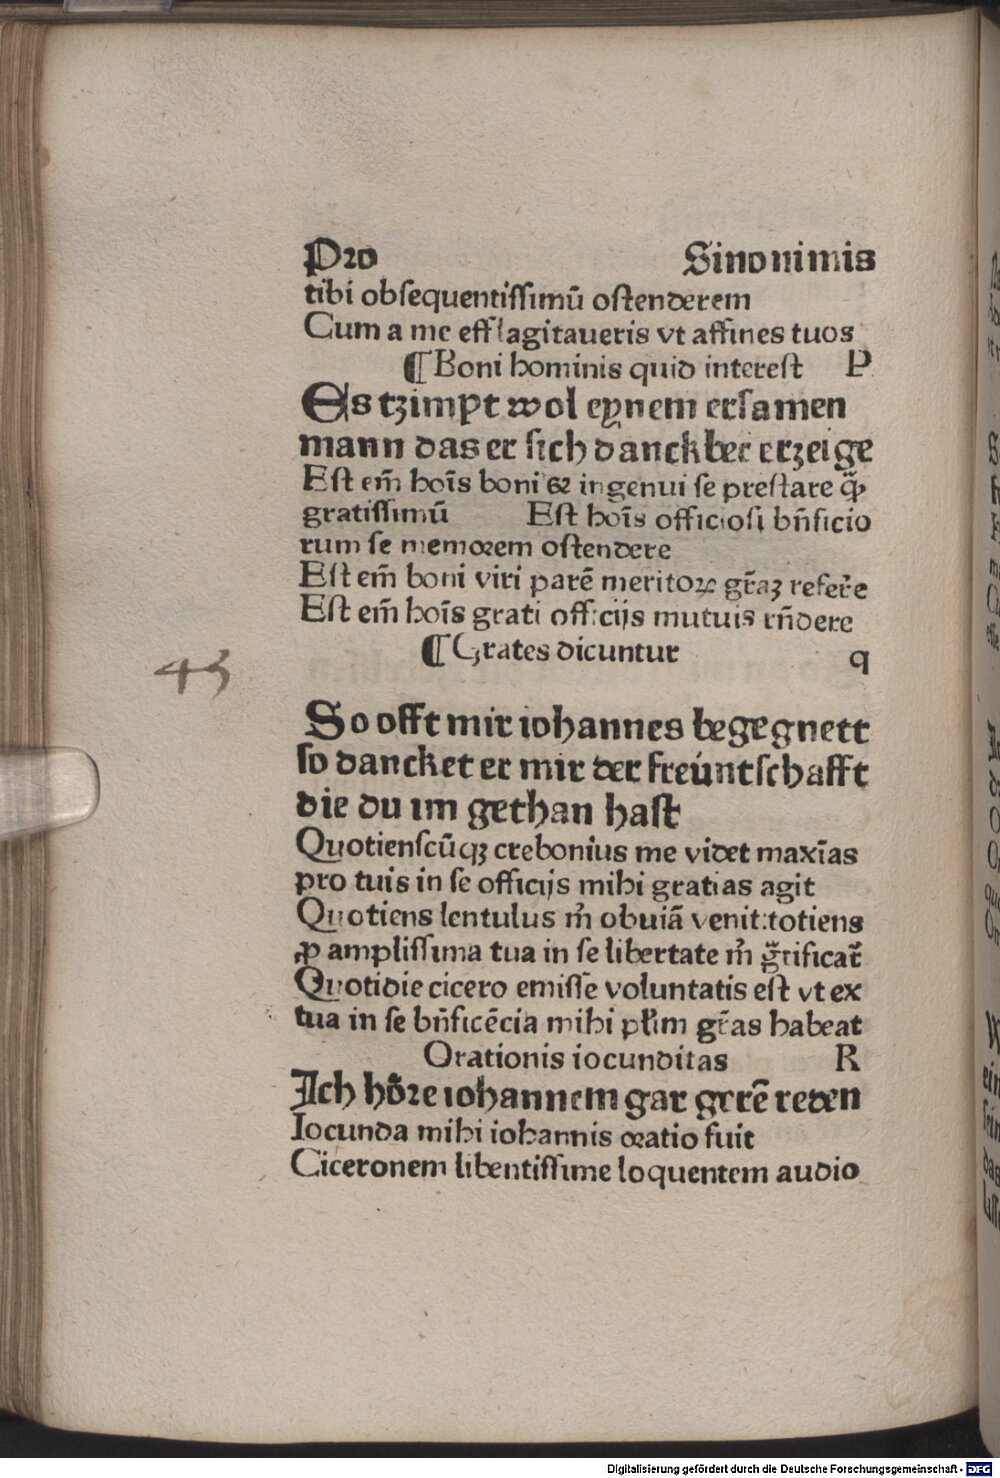 Pro Sinonimis
tibi obsequentissimū ostenderem
Cum a me efflagitaueris vt affines tuos
¶ Boni hominis quid interest P
Es tzimpt wol eynem ersamen
mann das er sich danckber erzeige
Est em̄ hoīs boni & ingenui se prestare
gratissimū Est hoīs officiosi bn̄ficio
rum se memorem ostendere
Est em̄ boni viri parē meritoꝝ gr̄aʒ refer̄e
Est em̄ hoīs grati officijs mutuis rn̄dere
¶ Grates dicuntur q
45
So offt mir iohannes begegnett
so dancket er mir der freúntschafft
die du im gethan hast
Quotienscūqʒ crebonius me videt maxīas
pro tuis in se officijs mihi gratias agit
Quotiens lentulus m̄ obuiā venit:totiens
ꝓ amplissima tua in se libertate m̄ gͣtificat̄
Quotidie cicero emisse voluntatis est vt ex
tua in se bn̄ficēcia mihi pl̄im gr̄as habeat
Orationis iocunditas R
Ich hôre iohannem gar gerē reden
Iocunda mihi iohannis oratio fuit
Ciceronem libentissime loquentem audio
Digitalisierung gefördert durch die Deutsche Forschungsgemeinschaft - DFG